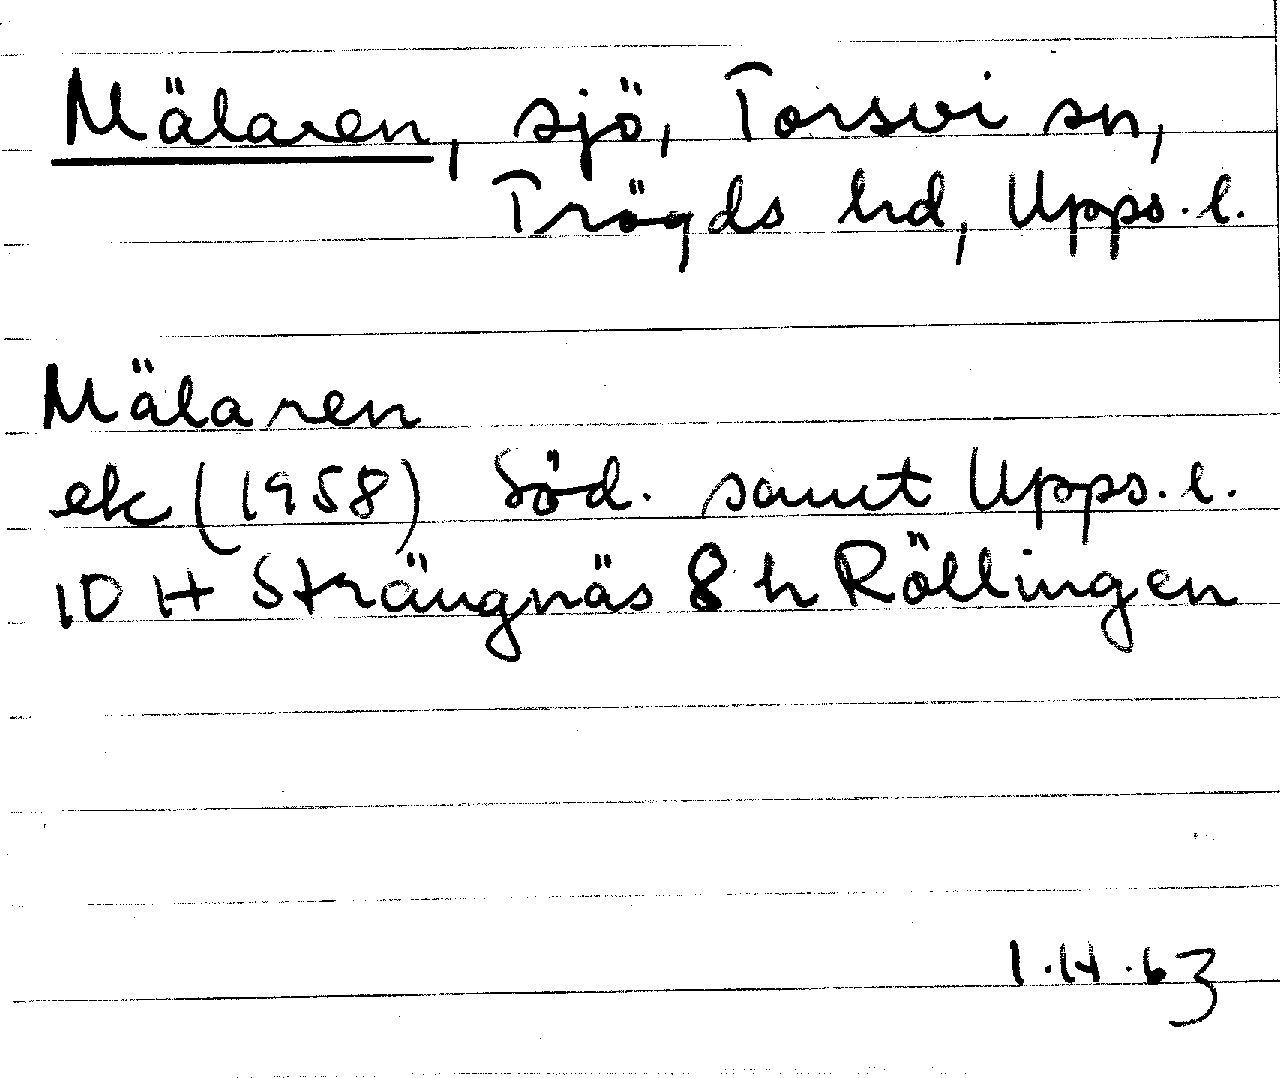 Mälaren, sjö, Torsvi sn,
Trögds hd, Upps. l.
Mälaren
ek (1958) Söd. samt Upps. l.
10 H Strängnäs 8 h Röllingen
1.H.63